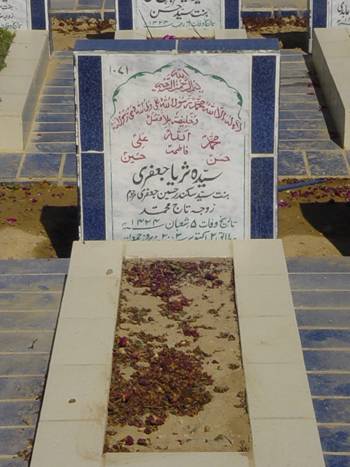 بنت سید حسن
۱۰۷۱
بسم اللہ الرحمن الرحیم
لا الہ الا اللہ محمد رسول اللہ علی ولی اللہ وصی رسول اللہ
وخلیفتہ بلا فصل
محمد اللہ علی
فاطمہ
حسن حسین
سیدہ ثریا جعفری
بنت سید سکندر حسین جعفری مرحوم
زوجہ تاج محمد
تاریخ وفات ۵ شعبان ۱۴۲۴ھ